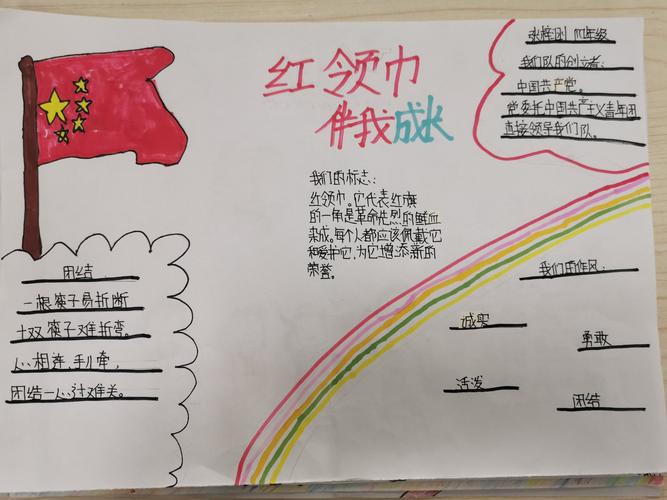 红领巾
伴我成长
四年级
我们队的创立者:
中国共产党。
党委托中国共产主义青年团
直接领导我们队。
我们的标志:
红领巾。它代表红旗
的一角是革命先烈的鲜血
染成。每个人都应该佩戴它
和爱护它,为它增添新的
荣誉。
团结
一根筷子易折断
十双筷子难折弯。
心相连,手儿牵,
团结一心讨难关。
我们的作风:
诚实
勇敢
活泼
团结